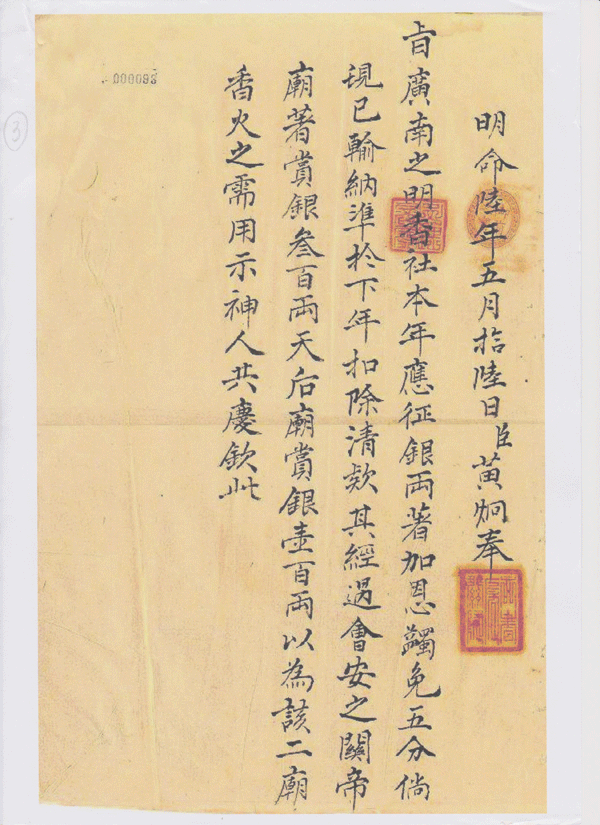 明命陸年五月拾陸日臣黃炯奉
旨廣南之明香社本年應征銀兩著加恩蠲免五分倘
現已輸納準於下年扣除清欵其經過會安之關帝
廟著賞銀叄百兩天后廟賞銀壹百兩以為該二廟
香火之需用示神人共慶欽此
000093
3